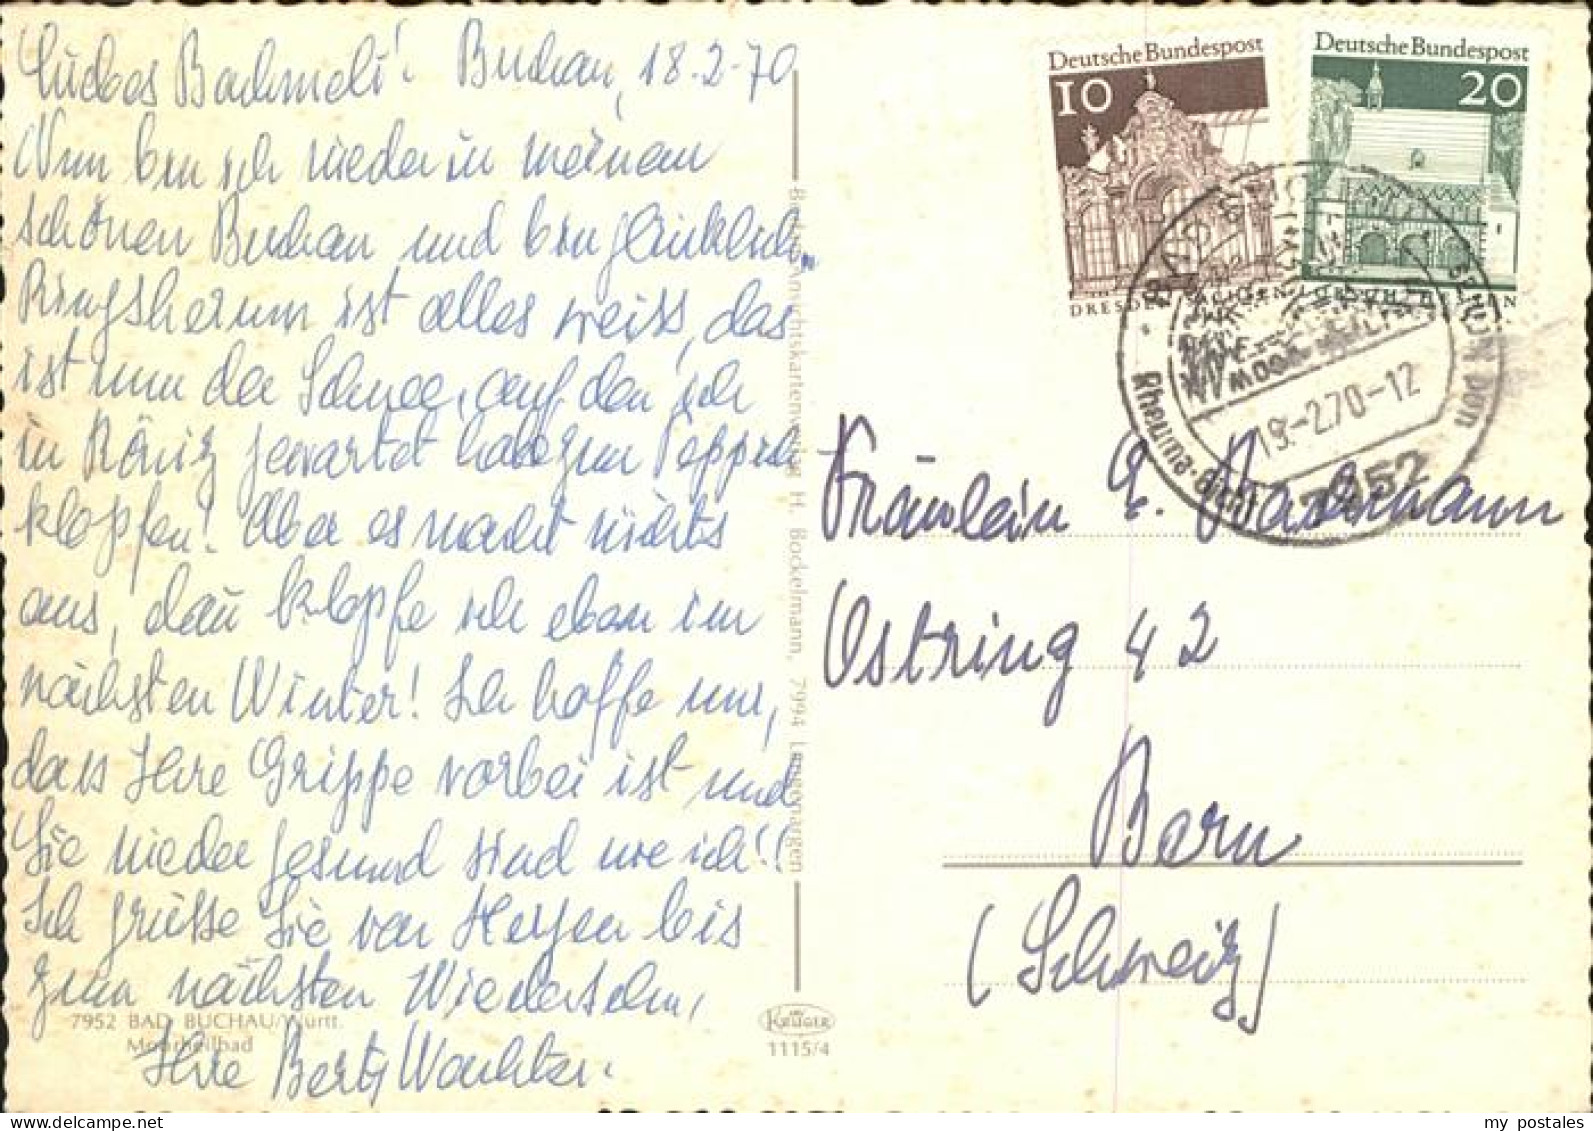 Liebes Bachmeli! Buchau, 18.2.70
Nun bin ich wieder in meinem
schönen Buchau und bin glücklich.
Ringsherum ist alles weiss, das
ist nun der Schnee, auf den ich
in Köniz gewartet habe zum Teppich
klopfen! Aber es macht nichts
aus, dan klopfe ich eben im
nächsten Winter! Ich hoffe nur,
dass Ihre Grippe vorbei ist und
Sie wieder gesund sind wie ich!!
Ich grüsse Sie von Herzen bis
zum nächsten Wiedersehn,
Ihre Berty Wachter.
7952 BAD BUCHAU/Württ.
Moorheilbad
Bild- u. Ansichtskartenverlag H. Bockelmann, 7994 Langenargen
KRÜGER
1115/4
Deutsche Bundespost
10
DRESDEN SACHSEN
Deutsche Bundespost
20
LORSCH HESSEN
19.-2.70-12
7952
Rheuma-Gicht
Fräulein E. Bachmann
Ostring 42
Bern
(Schweiz)
my postales